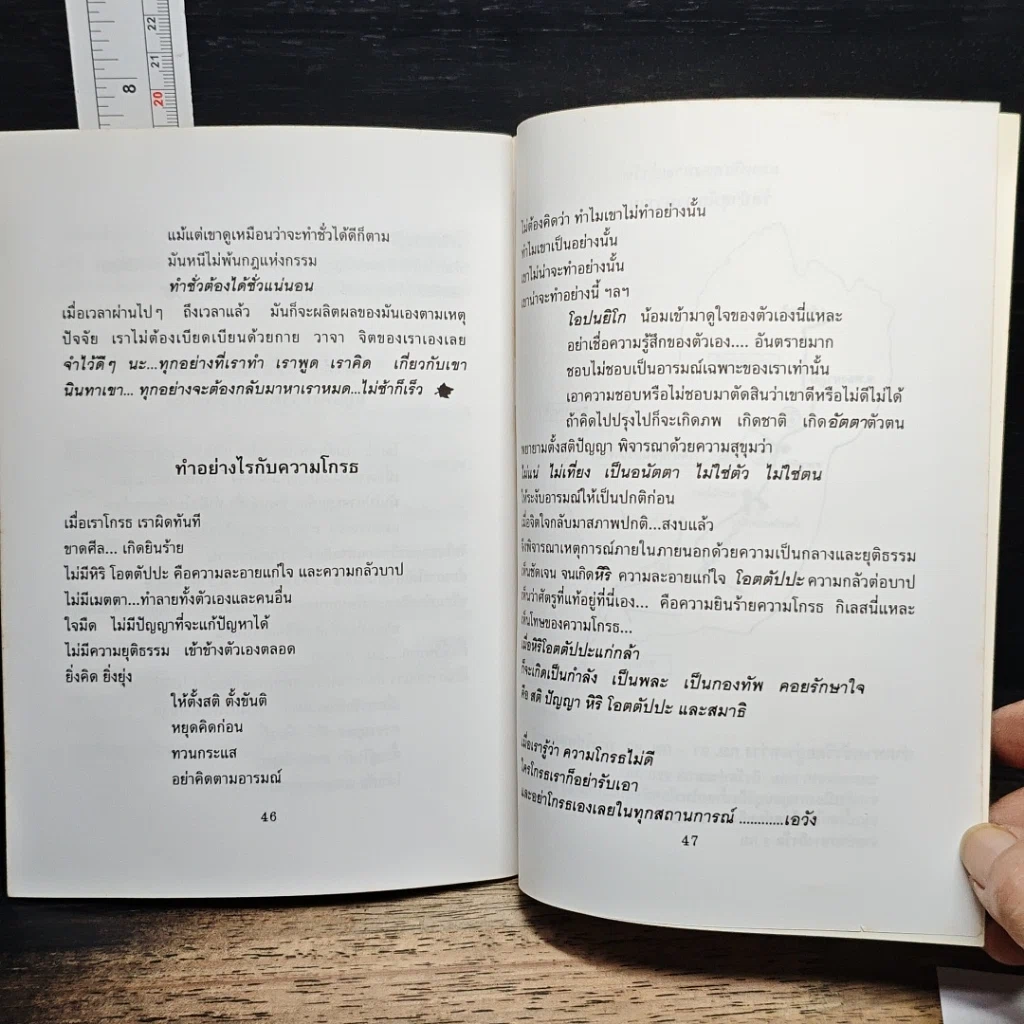 22
21
8
20
แม้แต่เขาดูเหมือนว่าจะทำชั่วได้ดีก็ตาม
มันหนีไม่พ้นกฎแห่งกรรม
ทำชั่วต้องได้ชั่วแน่นอน
เมื่อเวลาผ่านไปๆ ถึงเวลาแล้ว มันก็จะผลิตผลของมันเองตามเหตุ
ปัจจัย เราไม่ต้องเบียดเบียนด้วยกาย วาจา จิตของเราเองเลย
จำไว้ดีๆ นะ...ทุกอย่างที่เราทำ เราพูด เราคิด เกี่ยวกับเขา
นินทาเขา... ทุกอย่างจะต้องกลับมาหาเราหมด...ไม่ช้าก็เร็ว
ทำอย่างไรกับความโกรธ
เมื่อเราโกรธ เราผิดทันที
ขาดศีล... เกิดยินร้าย
ไม่มีหิริ โอตตัปปะ คือความละอายแก่ใจ และความกลัวบาป
ไม่มีเมตตา...ทำลายทั้งตัวเองและคนอื่น
ใจมืด ไม่มีปัญญาที่จะแก้ปัญหาได้
ไม่มีความยุติธรรม เข้าข้างตัวเองตลอด
ยิ่งคิด ยิ่งยุ่ง
ให้ตั้งสติ ตั้งขันติ
หยุดคิดก่อน
ทวนกระแส
อย่าคิดตามอารมณ์
46
ไม่ต้องคิดว่า ทำไมเขาไม่ทำอย่างนั้น
ทำไมเขาเป็นอย่างนั้น
เขาไม่น่าจะทำอย่างนั้น
เขาน่าจะทำอย่างนี้ ฯลฯ
โอปนยิโก น้อมเข้ามาดูใจของตัวเองนี่แหละ
อย่าเชื่อความรู้สึกของตัวเอง.... อันตรายมาก
ชอบไม่ชอบเป็นอารมณ์เฉพาะของเราเท่านั้น
เอาความชอบหรือไม่ชอบมาตัดสินว่าเขาดีหรือไม่ดีไม่ได้
ถ้าคิดไปปรุงไปก็จะเกิดภพ เกิดชาติ เกิดอัตตาตัวตน
พยายามตั้งสติปัญญา พิจารณาด้วยความสุขุมว่า
ไม่แน่ ไม่เที่ยง เป็นอนัตตา ไม่ใช่ตัว ไม่ใช่ตน
ให้ระงับอารมณ์ให้เป็นปกติก่อน
เมื่อจิตใจกลับมาสภาพปกติ...สงบแล้ว
จึงพิจารณาเหตุการณ์ภายในภายนอกด้วยความเป็นกลางและยุติธรรม
เห็นชัดเจน จนเกิดหิริ ความละอายแก่ใจ โอตตัปปะ ความกลัวต่อบาป
เห็นว่าศัตรูที่แท้อยู่ที่นี่เอง... คือความยินร้ายความโกรธ กิเลสนี่แหละ
เห็นโทษของความโกรธ...
เมื่อหิริโอตตัปปะแก่กล้า
ก็จะเกิดเป็นกำลัง เป็นพละ เป็นกองทัพ คอยรักษาใจ
คือ สติ ปัญญา หิริ โอตตัปปะ และสมาธิ
เมื่อเรารู้ว่า ความโกรธไม่ดี
ใครโกรธเราก็อย่ารับเอา
และอย่าโกรธเองเลยในทุกสถานการณ์ ............เอวัง
47